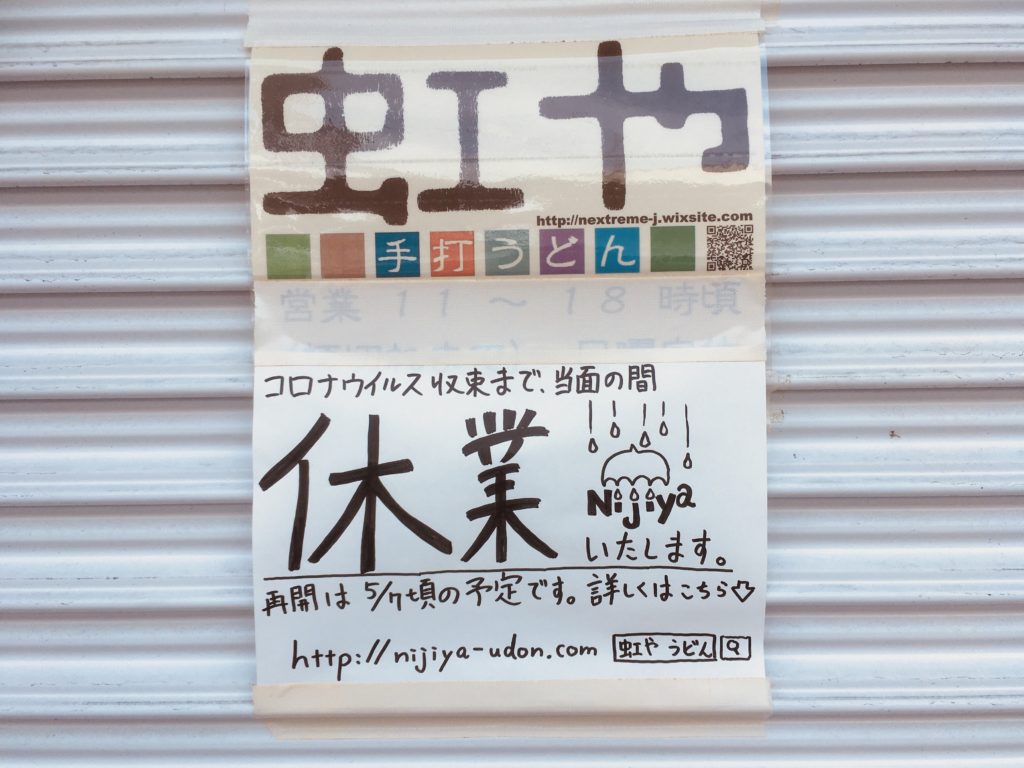 虹や
http://nextreme-j.wixsite.com
手打うどん
営業 11 ～ 18 時頃
コロナウイルス収束まで、当面の間
休業
Nijiya
いたします。
再開は 5/7頃の予定です。詳しくはこちら⇩
http://nijiya-udon.com 虹や うどん